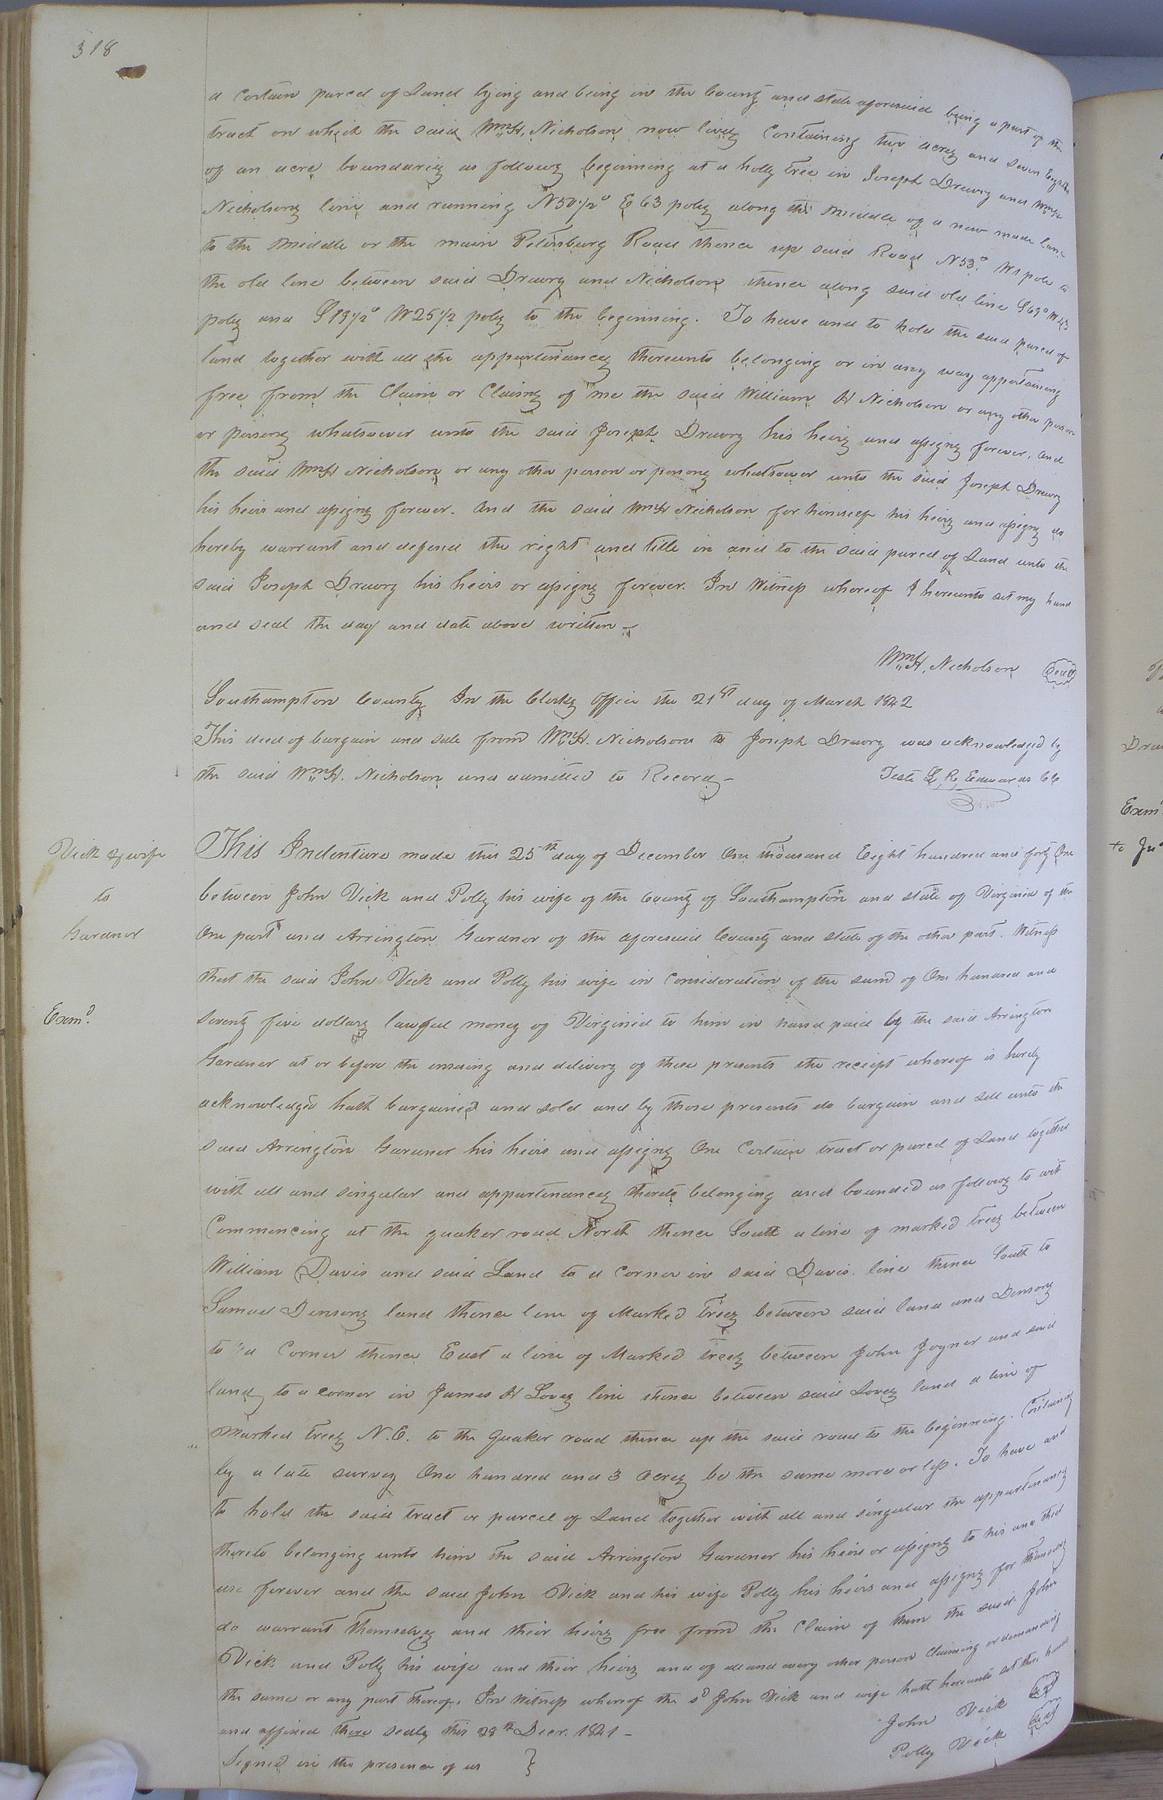 318
a certain parcel of Land lying and being in the County and state aforesaid being a part of the
tract on which the said Wm H. Nicholson now lives Containing two acres and seven Eighths
of an acre boundaries as follows beginning at a holly tree in Joseph Drewry and Wm H
Nicholsons line and running N50 1/2° E 63 poles along the middle of a new made lane
to the middle or the main Petersburg Road thence up said Road N53° W 1 pole to
the old line between said Drewry and Nicholson thence along said old line S 69° W 43
poles and S 13 1/2° W 25 1/2 poles to the beginning. To have and to hold the said parcel of
land together with all the appurtenances thereunto belonging or in any way appertaining
free from the Claim or Claims of me the said William H Nicholson or any other person
or persons whatsoever unto the said Joseph Drewry his heirs and assigns forever. and
the said Wm H Nicholson or any other person or persons whatsoever unto the said Joseph Drewry
his heirs and assigns forever. And the said Wm H Nicholson for himself his heirs and assigns do
hereby warrant and defend the right and title in and to the said parcel of Land unto the
said Joseph Drewry his heirs or assigns forever. In Witness whereof I hereunto set my hand
and seal the day and date above written –
Wm H. Nicholson (Seal)
Southampton County. In the Clerks Office the 21st day of March 1842
This deed of bargain and sale from Wm H. Nicholson to Joseph Drewry was acknowledged by
the said Wm H. Nicholson and admitted to Record –
Teste L. R. Edwards CC
Vick & wife
to
Gardner
Exmd.
This Indenture made this 25th day of December One thousand Eight hundred and forty One
between John Vick and Polly his wife of the County of Southampton and state of Virginia of the
One part and Arrington Gardner of the aforesaid County and state of the other part. Witness
that the said John Vick and Polly his wife in Consideration of the sum of One hundred and
seventy five dollars lawful money of Virginia to him in hand paid by the said Arrington
Gardner at or before the ensuing and delivery of these presents the receipt whereof is hereby
acknowledged hath bargained and sold and by those presents do bargain and sell unto the
said Arrington Gardner his heirs and assigns One Certain tract or parcel of Land together
with all and singular and appurtenances thereto belonging and bounded as follows to wit
Commencing at the quaker road North thence South a line of marked trees between
William Davis and said Land to a Corner in said Davis. line thence South to
Samuel Densons land thence line of Marked trees between said land and Densons
to a Corner thence East a line of Marked trees between John Joyner and said
land to a corner in James H Loves line thence between said Loves land a line of
Marked trees N.E. to the Quaker road thence up the said road to the beginning. Containing
by a late survey One hundred and 3 acres be the same more or less. To have and
to hold the said tract or parcel of Land together with all and singular the appurtenances
thereto belonging unto him the said Arrington Gardner his heirs or assigns to his and their
use forever and the said John Vick and his wife Polly his heirs and assigns for themselves
do warrant themselves and their heirs free from the Claim of them the said John
Vick and Polly his wife and their heirs and of all and every other person Claiming or demanding
the same or any part thereof. In Witness whereof the sd John Vick and wife hath hereunto set their hands
and affixed there seals this 28th Decr. 1841 –
John Vick (Seal)
Signed in the presence of us }
Polly Vick (Seal)
Exmd